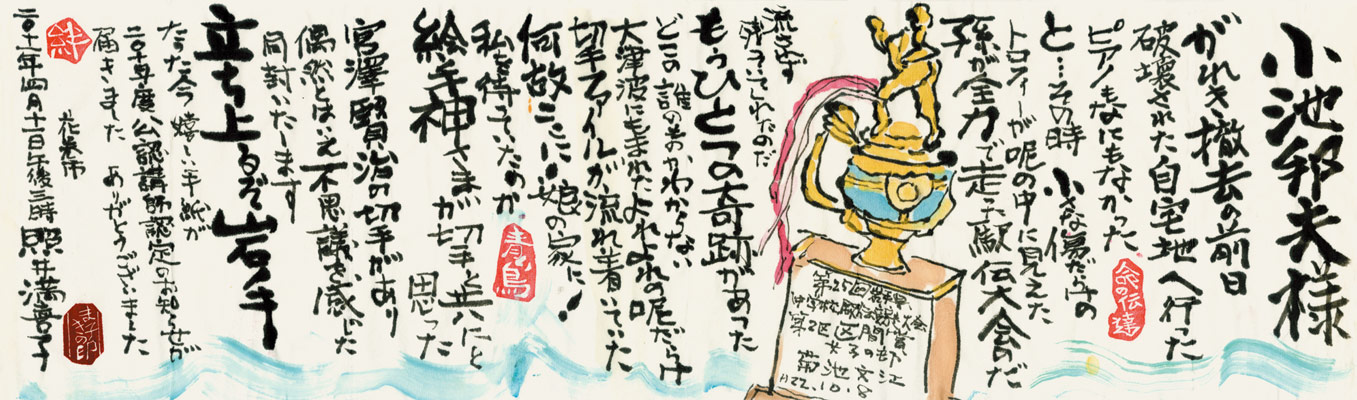 小池邦夫様
がれき撤去の前日
破壊された自宅地へ行った
ピアノもなにもなかった
と…その時 小さな傷だらけの
トロフィーが泥の中に見えた
孫が全力で走った駅伝大会のだ
流さず
残っていてくれたのだ
もうひとつの奇跡があった
どこの誰のものかわからない
大津波にもまれたよれよれの泥だらけ
切手ファイルが流れ着いていた
何故ここに 娘の家に!
私を待っていたのか
絵手神さまが切手と共にと
思った
宮澤賢治の切手があり
偶然とはいえ不思議を感じた
同封いたします
立ち上るぞ岩手
たった今 嬉しい手紙が
二〇一一年度公認講師認定のお知らせが
届きました ありがとうございました
花巻市
二〇一一年四月十一日午後三時 照井満喜子
命の伝達
青い鳥
絆
第2区
区間賞
H22.10.8